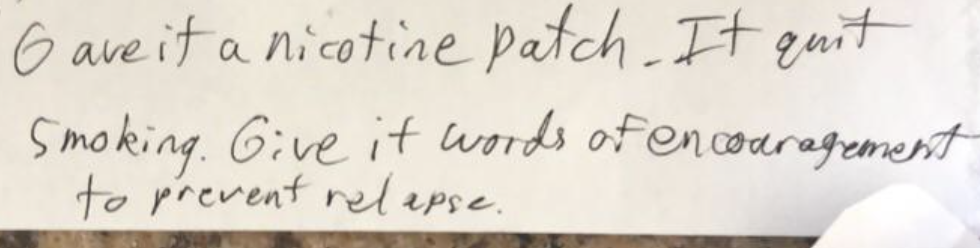 Gave it a nicotine patch. It quit
smoking. Give it words of encouragement
to prevent relapse.